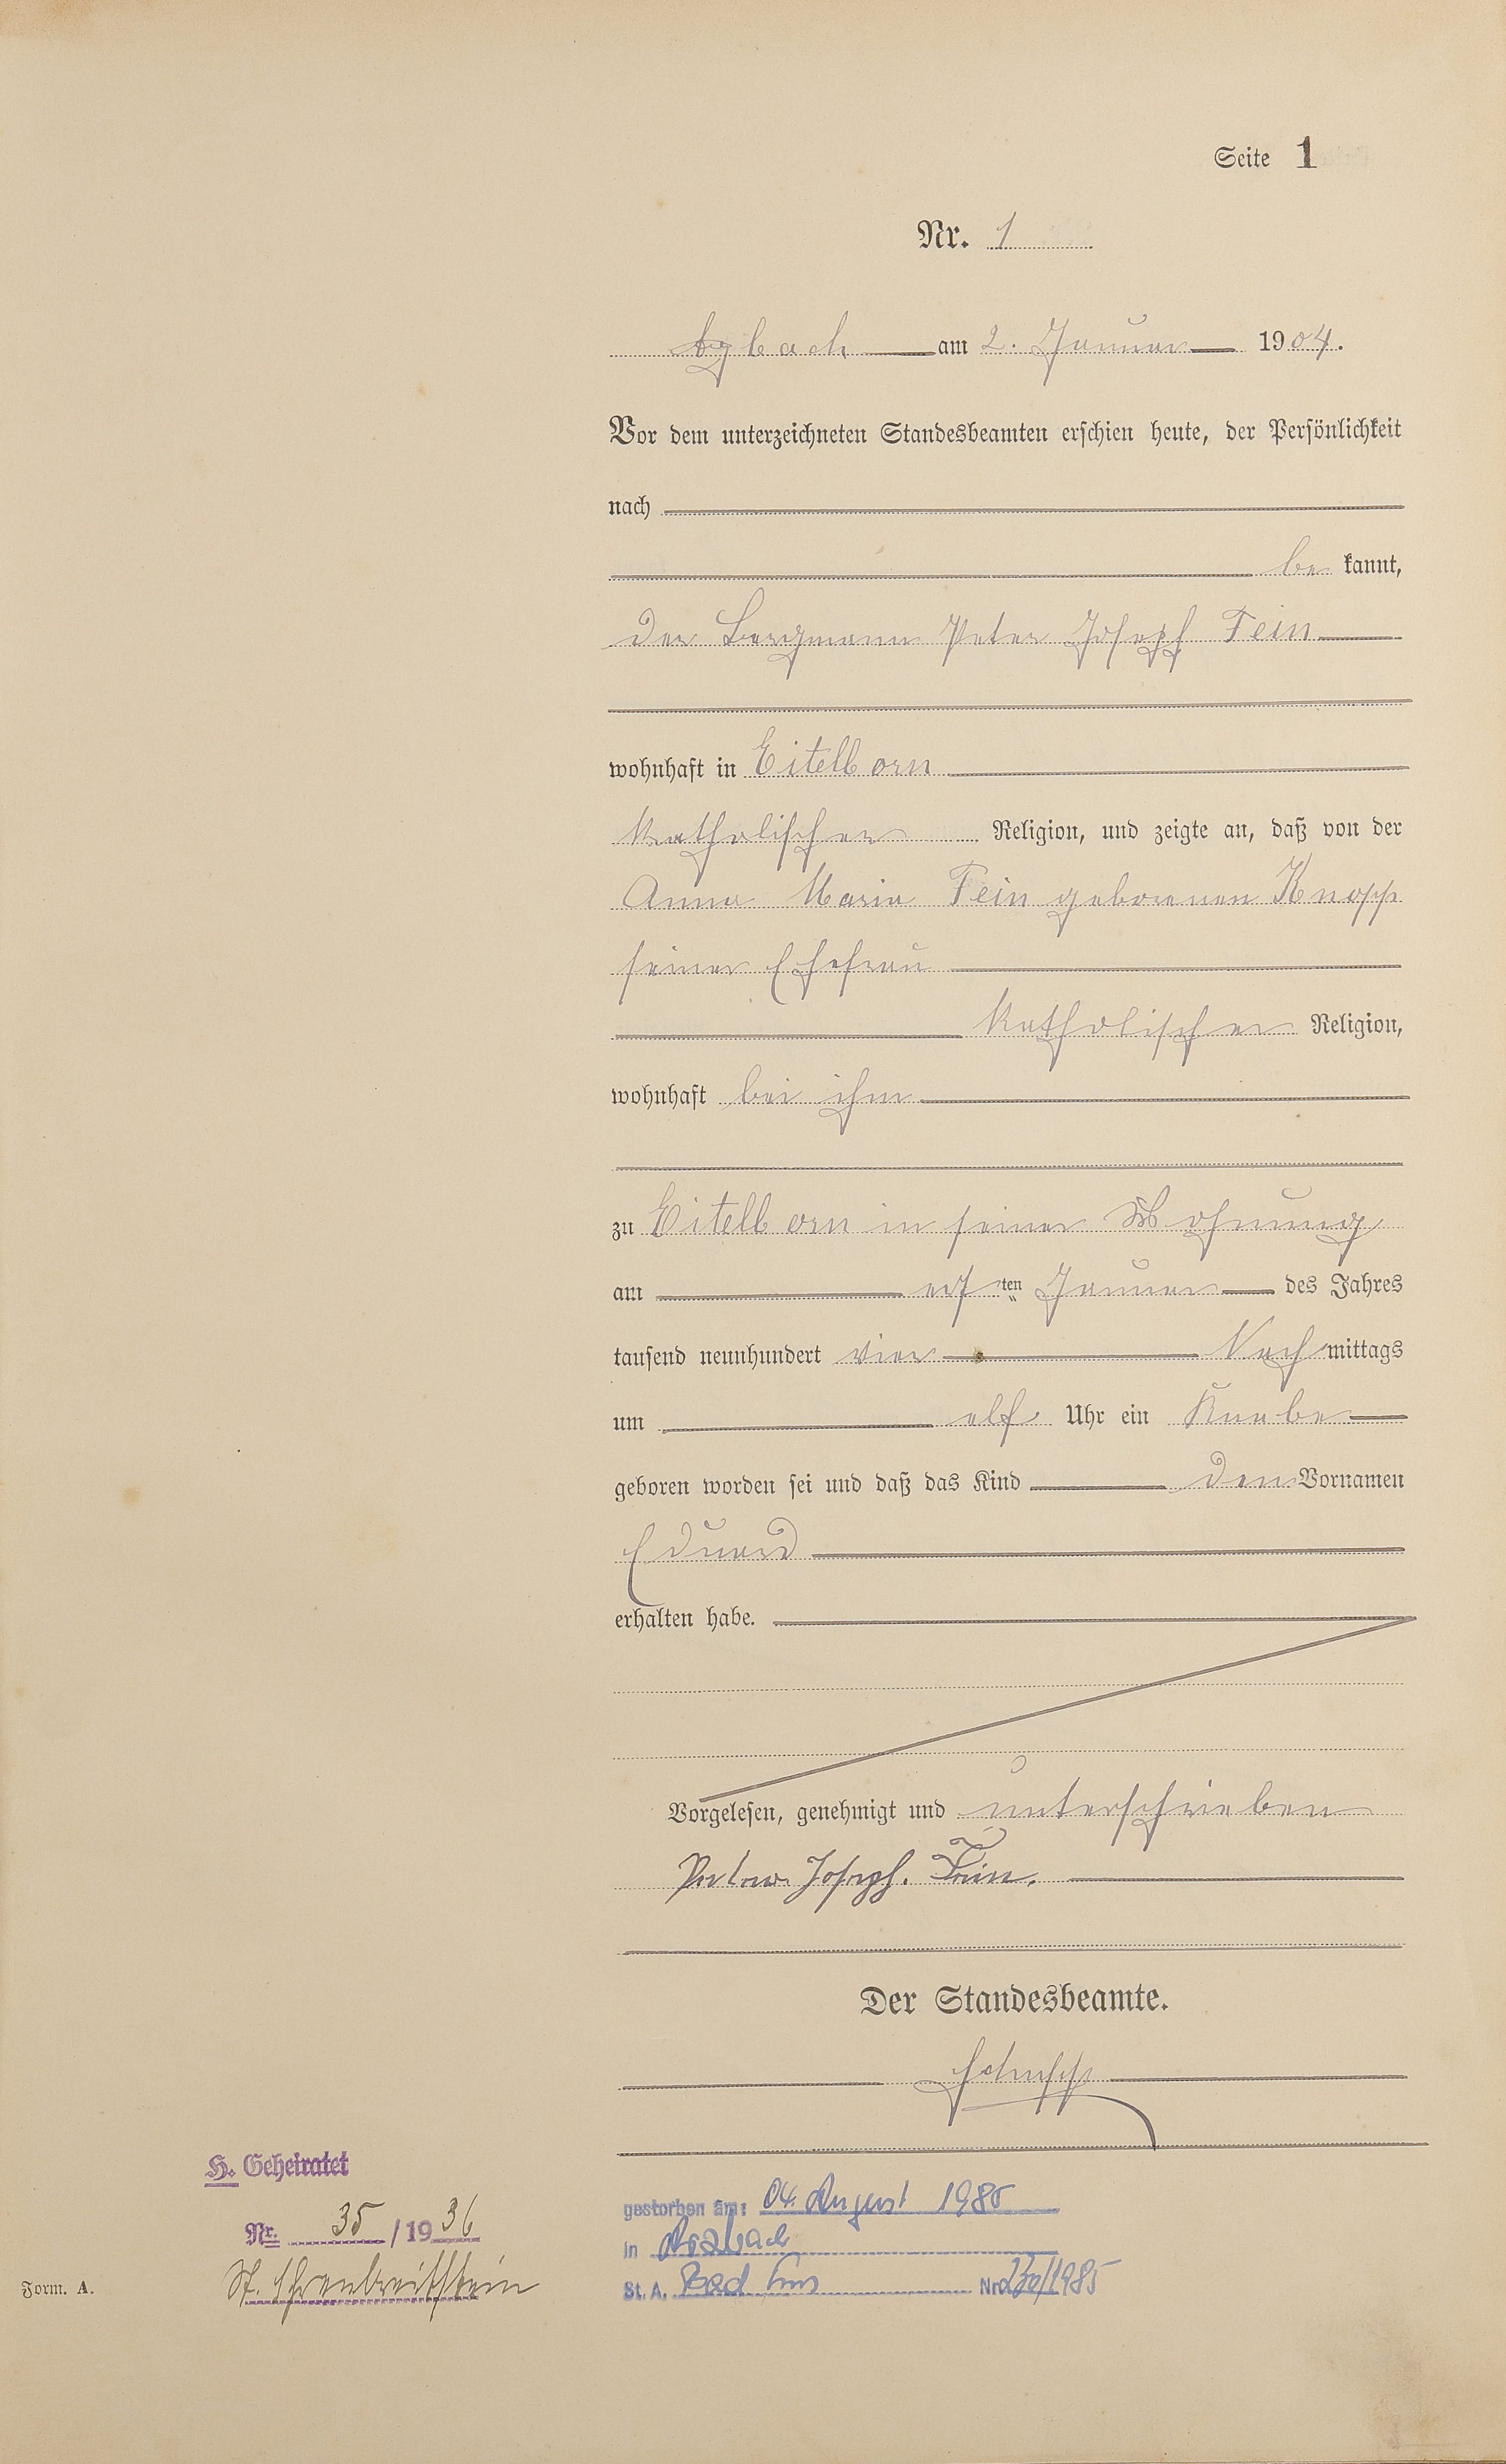 Seite 1
Nr. 1
Arzbach am 2. Januar 1904.
Vor dem unterzeichneten Standesbeamten erschien heute, der Persönlichkeit
nach
be kannt,
der Bergmann Peter Joseph Fein
wohnhaft in Eitelborn
katholischer Religion, und zeigte an, daß von der
Anna Maria Fein geborenen Knopp
seiner Ehefrau
katholischer Religion,
wohnhaft bei ihm
zu Eitelborn in seiner Wohnung
am ersten Januar des Jahres
tausend neunhundert vier Nach mittags
um elf Uhr ein Knabe
geboren worden sei und daß das Kind den Vornamen
Eduard
erhalten habe.
Vorgelesen, genehmigt und unterschrieben
Peter Joseph. Fein.
Der Standesbeamte.
H. Geheiratet
Nr. 35 / 1936
St. Ehrenbreitstein
gestorben am: 04. August 1985
in Arzbach
St. A. Bad Ems Nr. /1985
Form. A.